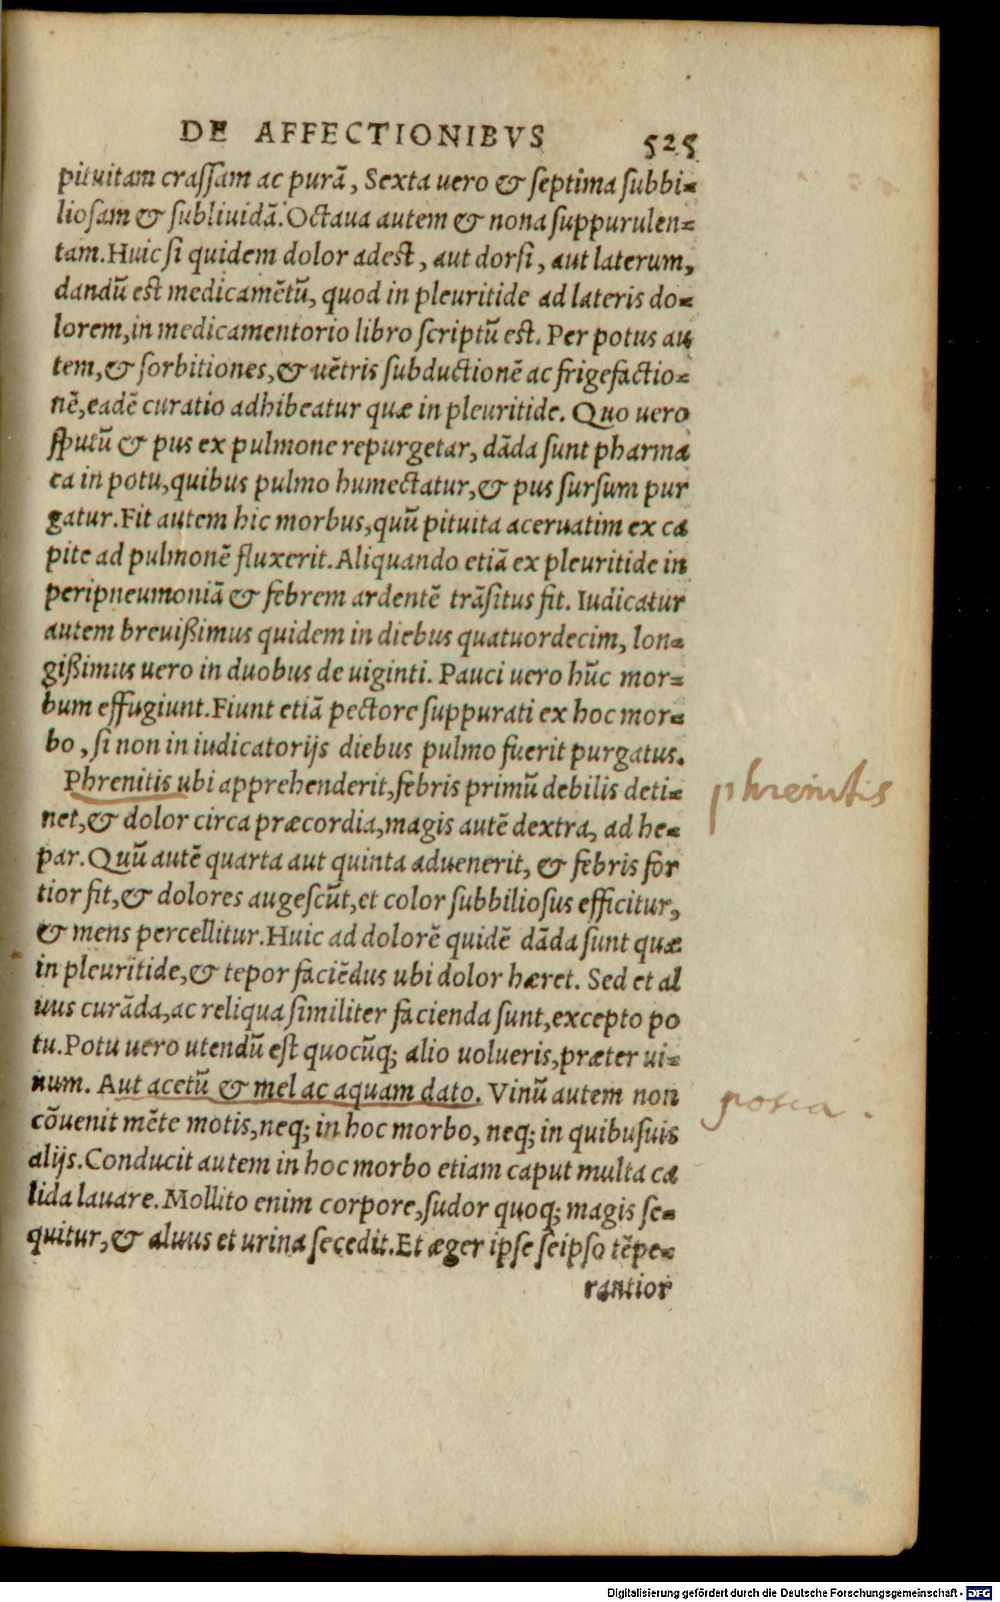 DE AFFECTIONIBVS 525
pituitam crassam ac purā, Sexta uero & septima subbi-
liosam & subliuidā. Octaua autem & nona suppurulen-
tam. Huic si quidem dolor adest, aut dorsi, aut laterum,
dandū est medicamētū, quod in pleuritide ad lateris do-
lorem, in medicamentorio libro scriptū est. Per potus au
tem, & sorbitiones, & uētris subductionē ac frigefactio-
nē, eadē curatio adhibeatur quæ in pleuritide. Quo uero
sputū & pus ex pulmone repurgetar, dāda sunt pharma
ca in potu, quibus pulmo humectatur, & pus sursum pur
gatur. Fit autem hic morbus, quū pituita aceruatim ex ca
pite ad pulmonē fluxerit. Aliquando etiā ex pleuritide in
peripneumoniā & febrem ardentē trāsitus fit. Iudicatur
autem breuißimus quidem in diebus quatuordecim, lon-
gißimus uero in duobus de uiginti. Pauci uero hūc mor-
bum effugiunt. Fiunt etiā pectore suppurati ex hoc mor-
bo, si non in iudicatorijs diebus pulmo fuerit purgatus.
Phrenitis ubi apprehenderit, febris primū debilis deti-
net, & dolor circa præcordia, magis autē dextra, ad he-
par. Quū autē quarta aut quinta aduenerit, & febris for
tior fit, & dolores augescūt, et color subbiliosus efficitur,
& mens percellitur. Huic ad dolorē quidē dāda sunt quæ
in pleuritide, & tepor faciēdus ubi dolor hæret. Sed et al
uus curāda, ac reliqua similiter facienda sunt, excepto po
tu. Potu uero utendū est quocūq; alio uolueris, præter ui-
num. Aut acetū & mel ac aquam dato. Vinū autem non
cōuenit mēte motis, neq; in hoc morbo, neq; in quibusuis
alijs. Conducit autem in hoc morbo etiam caput multa ca
lida lauare. Mollito enim corpore, sudor quoq; magis se-
quitur, & aluus et urina secedit. Et æger ipse seipso tēpe-
rantior
phrenitis
posca.
Digitalisierung gefördert durch die Deutsche Forschungsgemeinschaft - DFG